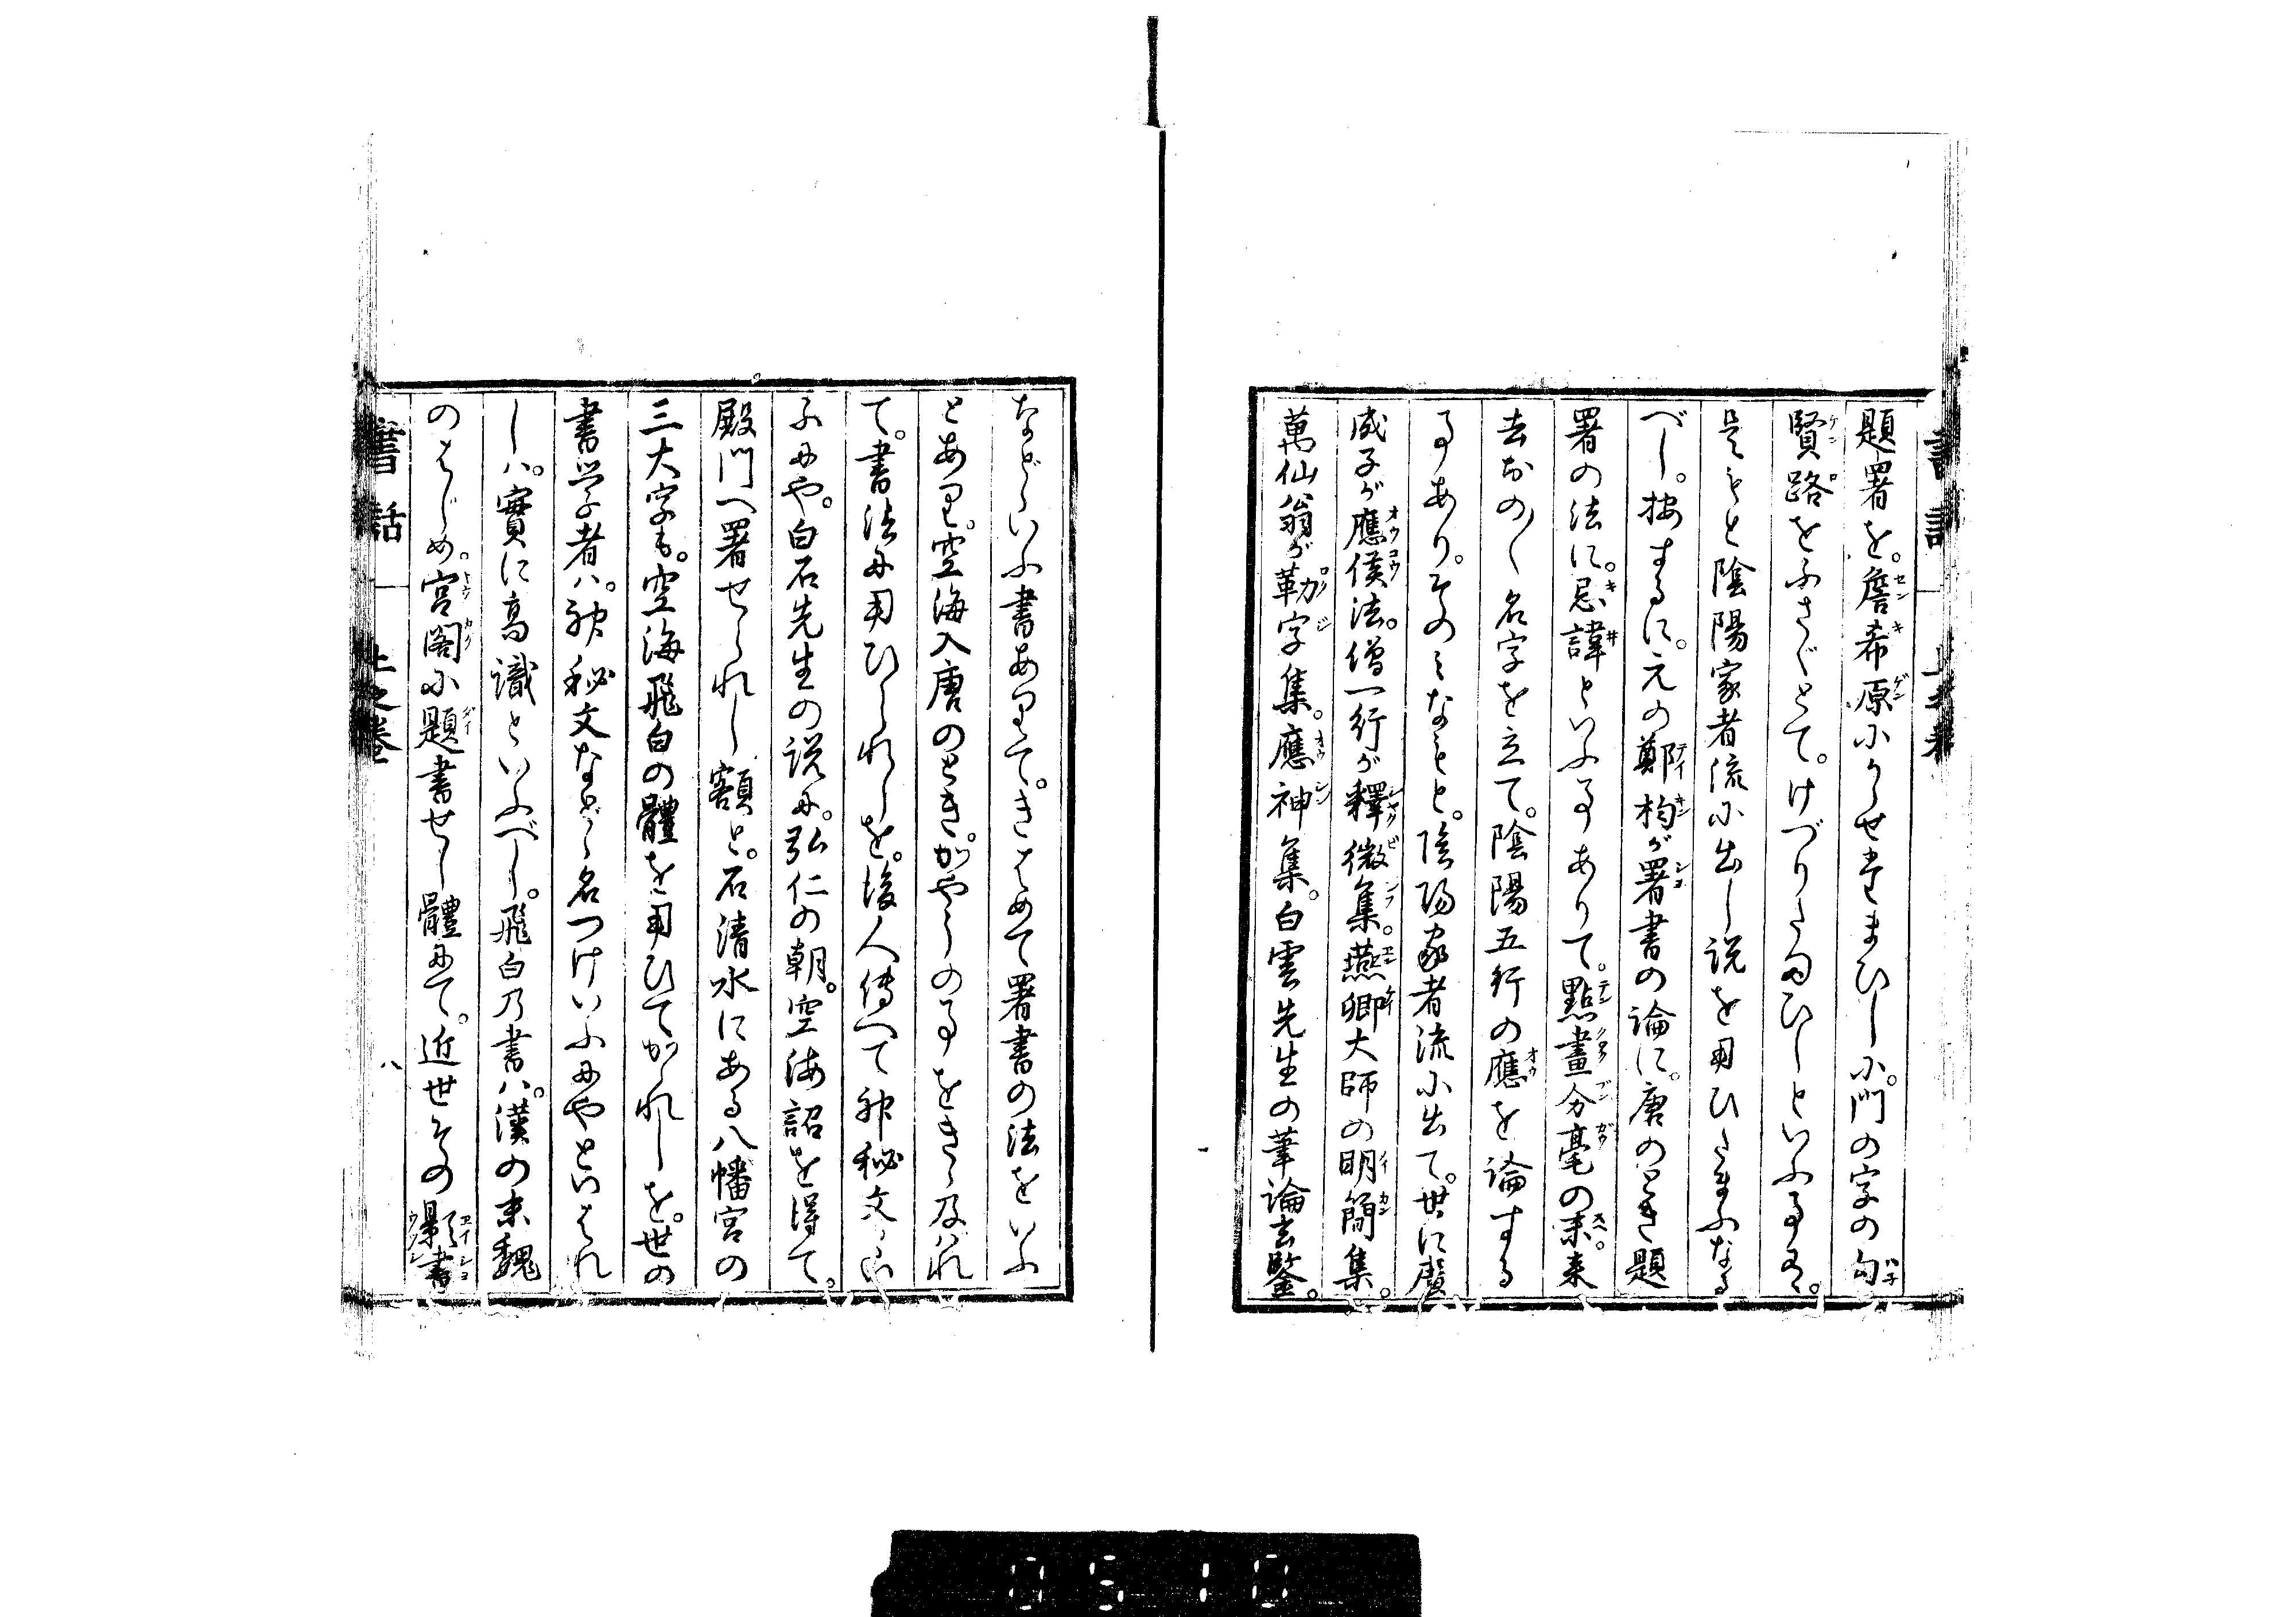 題署を。詹希原にかゝせたまひしに。門の字の勾
賢路をふさぐとて。けづりたまひしといふ事あり。
是もと陰陽家者流に出し説を用ひたまふなる
べし。按するに。元の鄭杓が署書の論に。唐のとき題
署の法に。忌諱といふ事ありて。點畫分毫の末。来
去おの〱名字を立て。陰陽五行の應を論する
事あり。そのみなもと。陰陽家者流に出て。世に
成子が應侯法。僧一行が釋微集。燕卿大師の明簡集。
萬仙翁が勒字集。應神集。白雲先生の筆論玄鑒。
などゝいふ書ありて。きはめて署書の法をいふ
とあり。空海入唐のとき。がやうの事をきゝ及ばれ
て。書法に用ひられしを。後人傳へて神秘文
ふにや。白石先生の説に。弘仁の朝。空海詔を得て。
殿門へ署せられし額と。石清水にある八幡宮の
三大字も。空海飛白の體を用ひてかゝれしを。世の
書学者ハ。神秘文などゝ名つけいふにやといはれ
しハ。實に高識といふべし。飛白の書ハ。漢の末魏
のはじめ。宮閣に題書せし體にて。近世その書
書話
上之巻
八